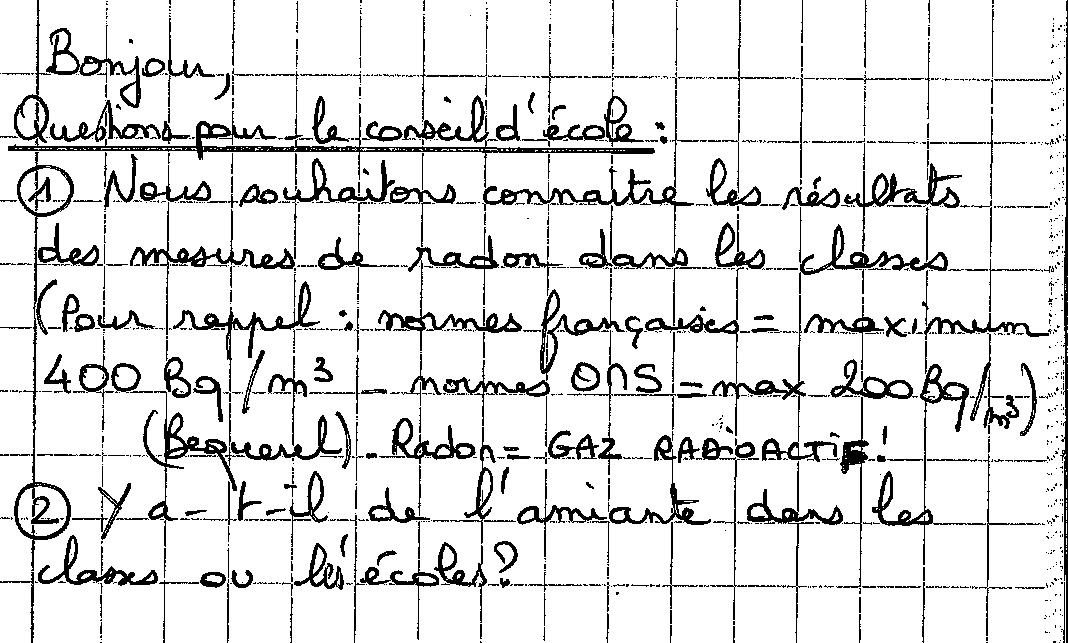 Bonjour,
Questions pour le conseil d'école :
① Nous souhaitons connaitre les résultats
des mesures de radon dans les classes
(Pour rappel : normes françaises = maximum
400 Bq/m³ - normes OMS = max 200 Bq/m³)
(Bequerel). Radon = GAZ RADiOACTiF !
② Y a-t-il de l'amiante dans les
classes ou les écoles ?